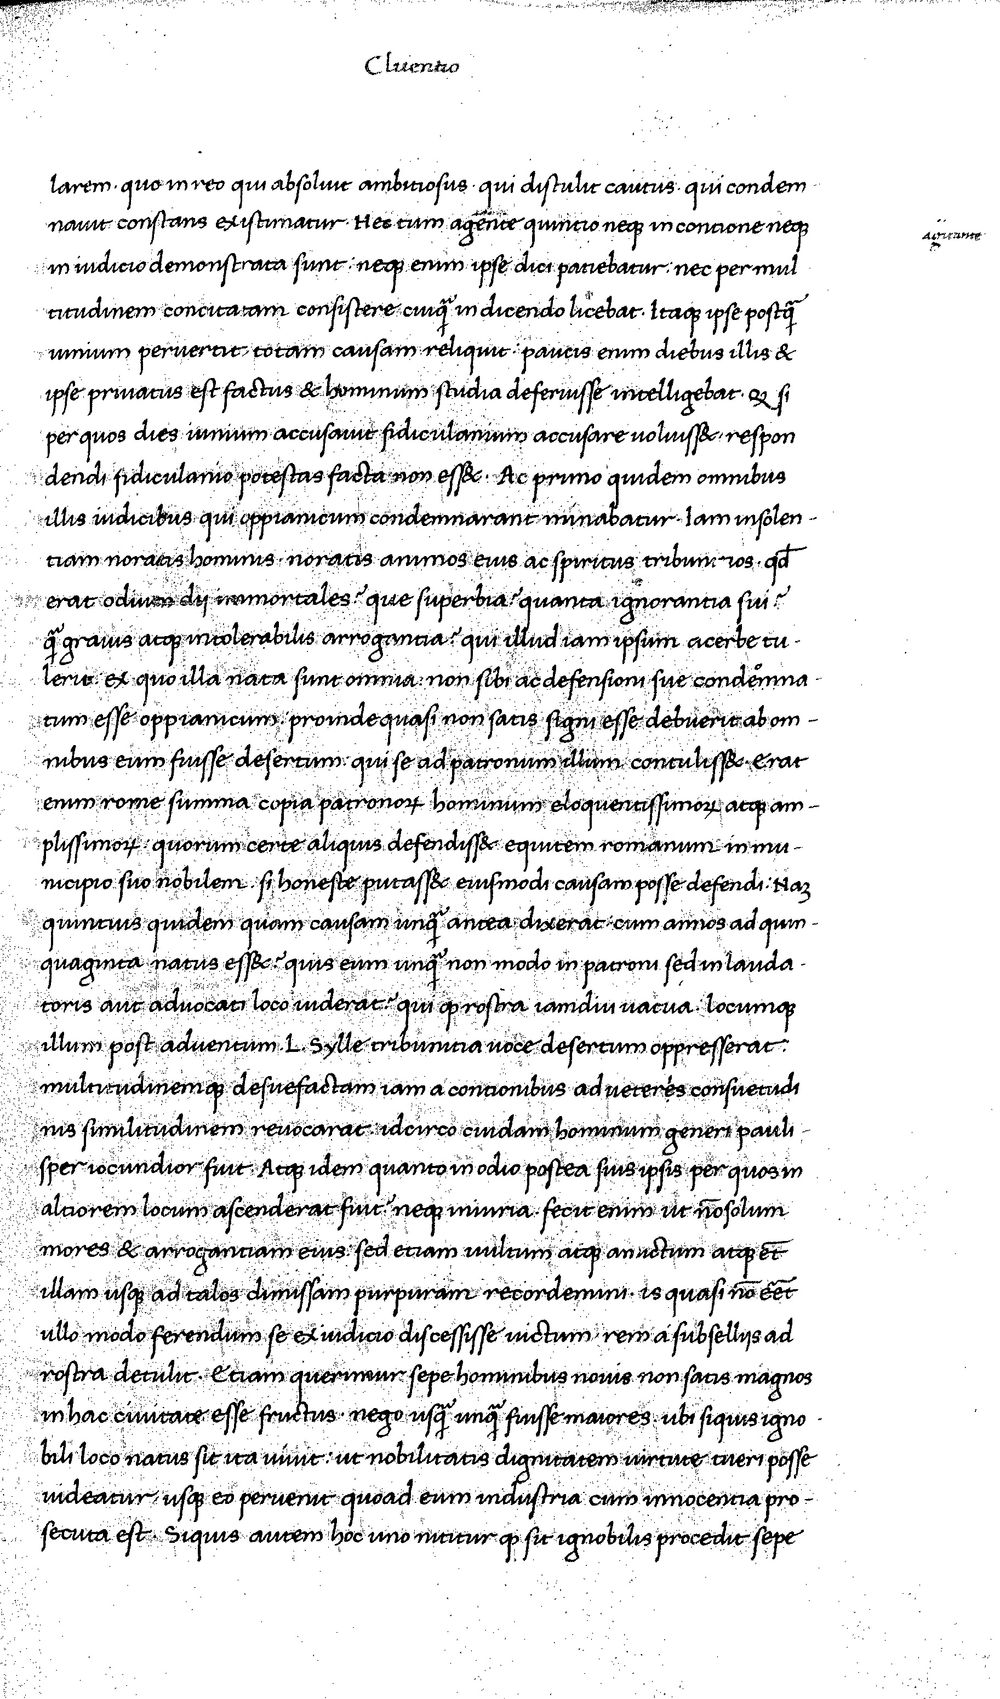 Cluentio
larem · quo in reo qui absoluit ambitiosus · qui distulit cautus · qui condem
nauit constans existimatur · Hec tum agente quintio neqꝫ in contione neqꝫ
agitante
in iudicio demonstrata sunt · neqꝫ enim ipse dici patiebatur · nec per mul
titudinem concitatam consistere cuiq̃ in dicendo licebat · Itaqꝫ ipse postq̃
iunium peruertit totam causam reliquit · paucis enim diebus illis &
ipse priuatus est factus & hominum studia deferuisse intelligebat · Qꝫ si
per quos dies iunium accusauit fidiculanium accusare uoluiss& · respon
dendi fidiculanio potestas facta non ess& · Ac primo quidem omnibus
illis iudicibus qui oppianicum condemnarant minabatur · Iam insolen-
tiam noratis hominis · noratis animos eius ac spiritus tribunitios · qđ
erat odium dij immortales? que superbia? quanta ignorantia sui?
q̃ grauis atqꝫ intolerabilis arrogantia? qui illud iam ipsum acerbe tu-
lerit ex quo illa nata sunt omnia · non sibi ac defensioni sue condemna-
tum esse oppianicum · proinde quasi non satis signi esse debuerit ab om-
nibus eum fuisse desertum · qui se ad patronum illum contuliss& · Erat
enim rome summa copia patronoꝝ hominum eloquentissimoꝝ atqꝫ am-
plissimoꝝ · quorum certe aliquis defendiss& equitem romanum in mu-
nicipio suo nobilem · si honeste putass& eiusmodi causam posse defendi · Naꝫ
quintius quidem quam causam unq̃ antea dixerat · cum annos ad quin-
quaginta natus ess&? quis eum unq̃ non modo in patroni sed in lauda-
toris aut aduocati loco uiderat? qui ꝙ rostra iamdiu uacua · locumqꝫ
illum post aduentum L. Sylle tribunitia uoce desertum oppresserat ·
multitudinemqꝫ desuefactam iam a contionibus ad ueteres consuetudi
nis similitudinem reuocarat · idcirco cuidam hominum generi pauli-
sper iocundior fuit · Atqꝫ idem quanto in odio postea suis ipsis per quos in
altiorem locum ascenderat fuit? neqꝫ iniuria · fecit enim ut nõ solum
mores & arrogantiam eius · sed etiam uultum atqꝫ amictum atqꝫ et̃
illam usqꝫ ad talos dimissam purpuram recordemini · is quasi nõ eẽt
ullo modo ferendum se ex iudicio discessisse uictum · rem a subsellijs ad
rostra detulit · Etiam querimur sepe hominibus nouis non satis magnos
in hac ciuitate esse fructus · nego usq̃ unq̃ fuisse maiores · ubi siquis igno-
bili loco natus sit ita uiuit · ut nobilitatis dignitatem uirtute tueri posse
uideatur · usqꝫ eo peruenit quoad eum industria cum innocentia pro-
secuta est · Siquis autem hoc uno nititur ꝙ sit ignobilis procedit sepe